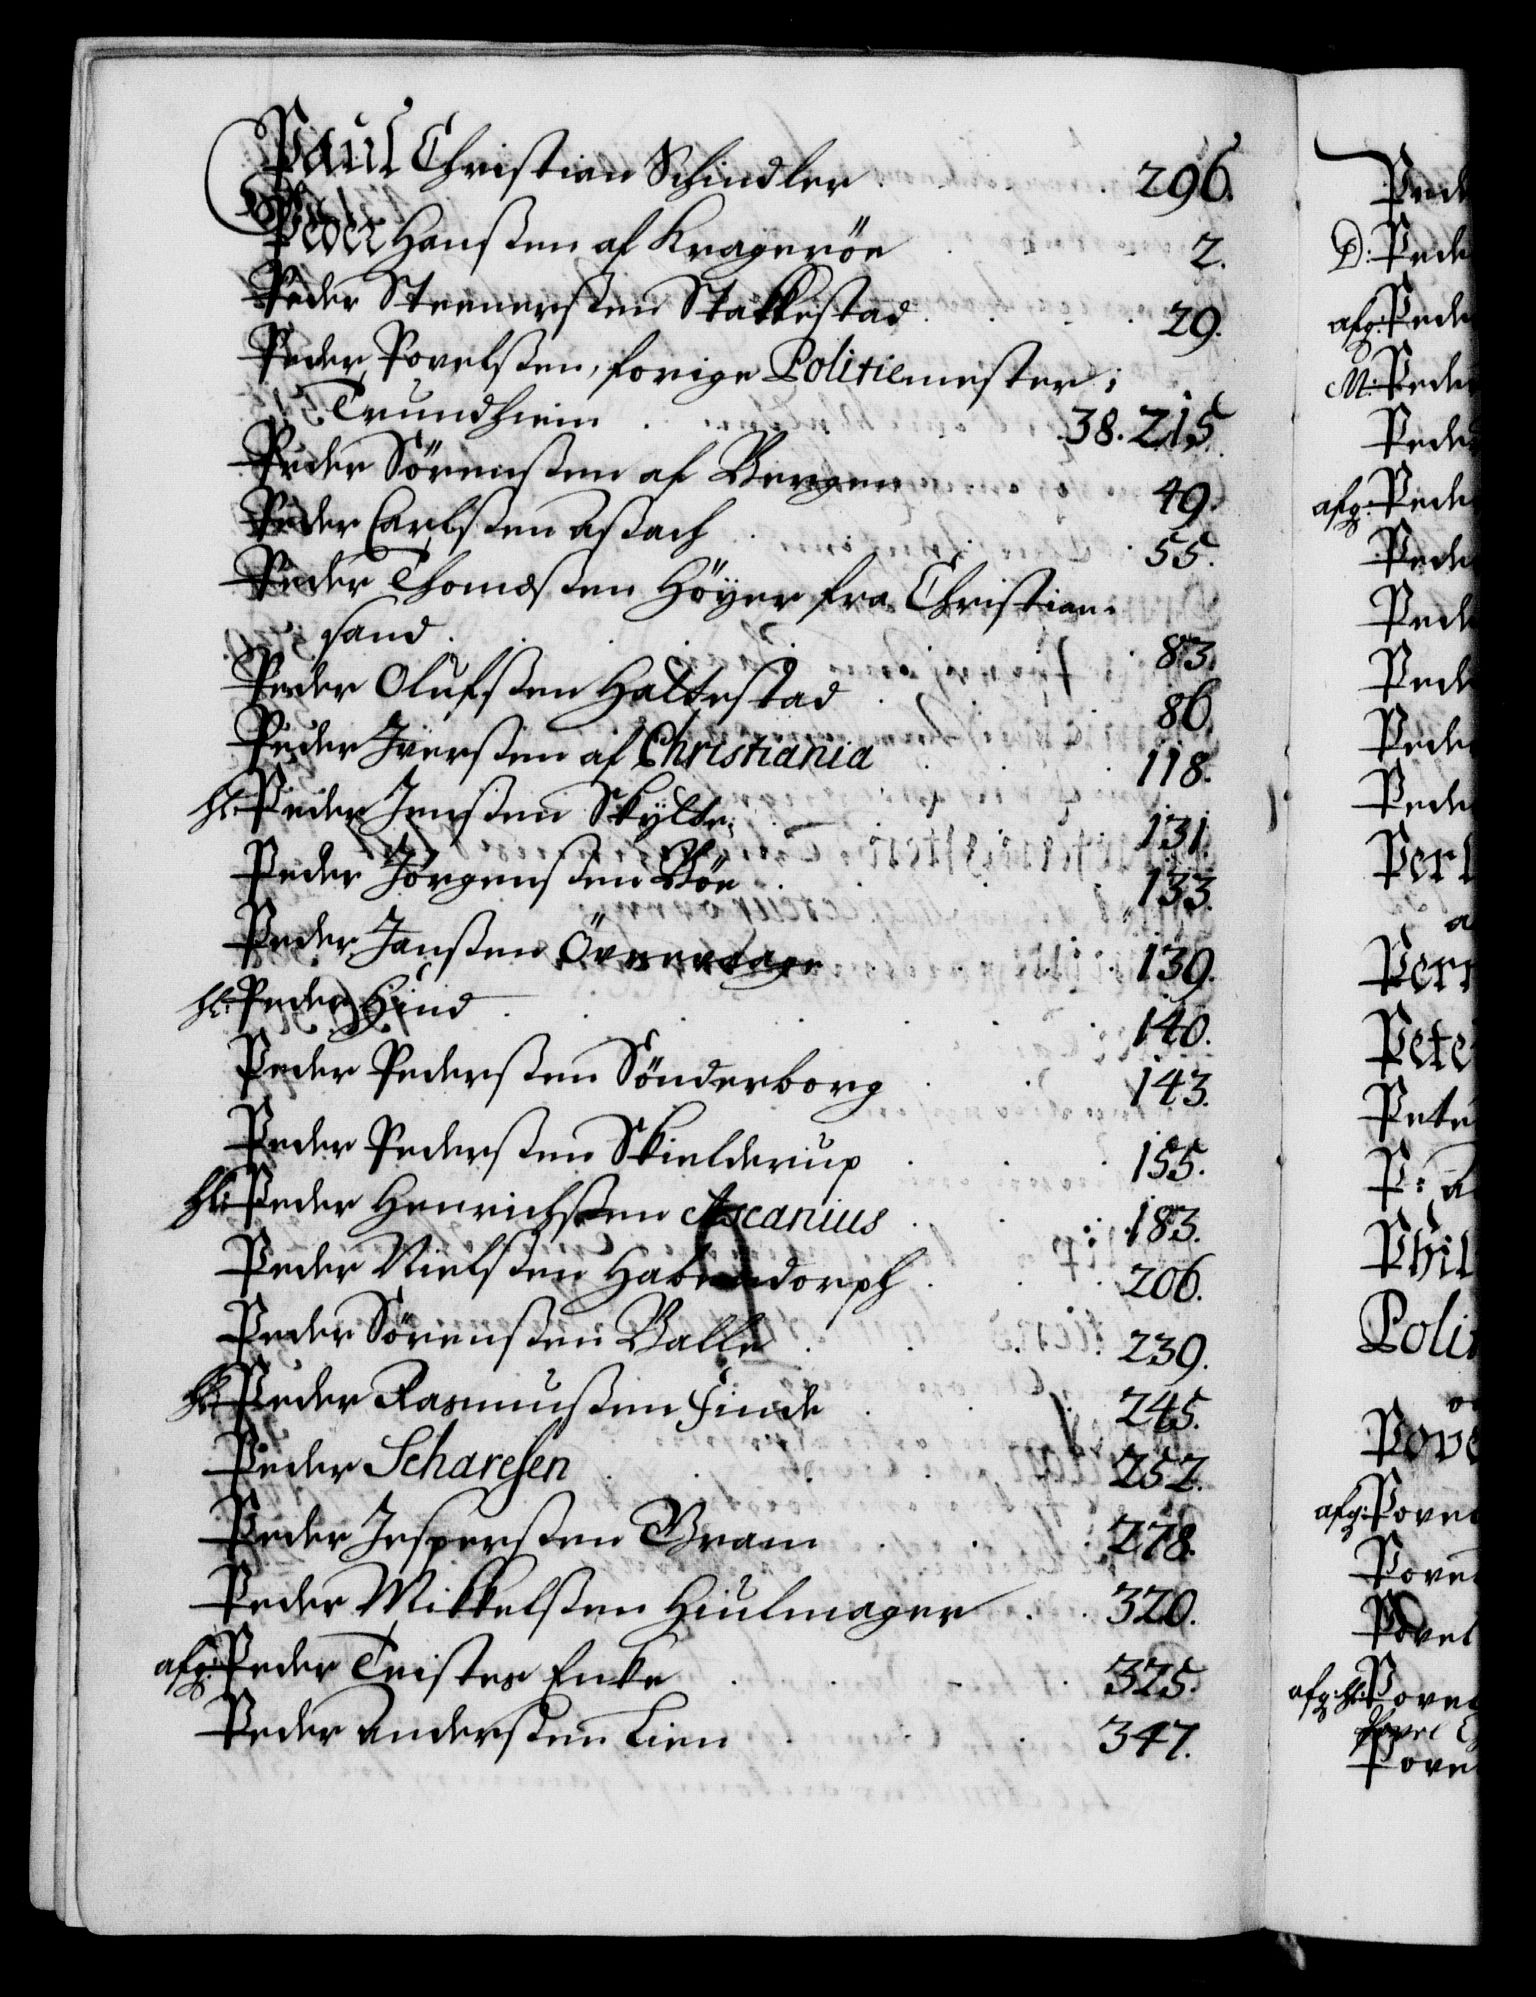 Paul Christian Schindler . . 296.
Peder Hanßen af Krageröe . 2.
Peder Steenersßen Stakkestad . . 29.
Peder Povelsßen, forige Politiemester i
Trundhiem . . 38. 215.
Peder Sörensßen af Bergen 49.
Peder Carlsßen Aßach . . 55.
Peder Thomæsßen Höyer fra Christian-
sand . . . . 83.
Peder Olufsßen Haltestad . . 86.
Peder Iversßen af Christiania . . 118.
hl: Peder Jensßen Skÿtte . 131.
Peder Jörgensßen Böe . . 133.
Peder Jansßen 139.
hl: Peder Hind . . . . 140.
Peder Pedersßen Sönderborg . . 143.
Peder Pedersßen Skielderup . . . 155.
hl: Peder Henrichsßen Ascanius . . 183.
Peder Nielsßen Habendorph . . . 206.
Peder Sörensßen Balle . . . 239.
hl: Peder Rasmusßen Finde . . . 245.
Peder Scharesen . . . 252.
Peder Jespersßen Bram . . . 278.
Peder Mikkelsßen Hiulmager . . 320.
afg: Peder Enke . . . 325.
Peder Andersßen Lien . . . 347.
Pede
D: Pede
afg: Pede
M: Peder
Peder
afg: Pede
Pede
Pede
Pede
Peder
Pede
Perl
Pete
Pete
Phil
Poli
Pove
afg: Povel
Povel
Povel
afg: hl: Povel
Povel
Pove